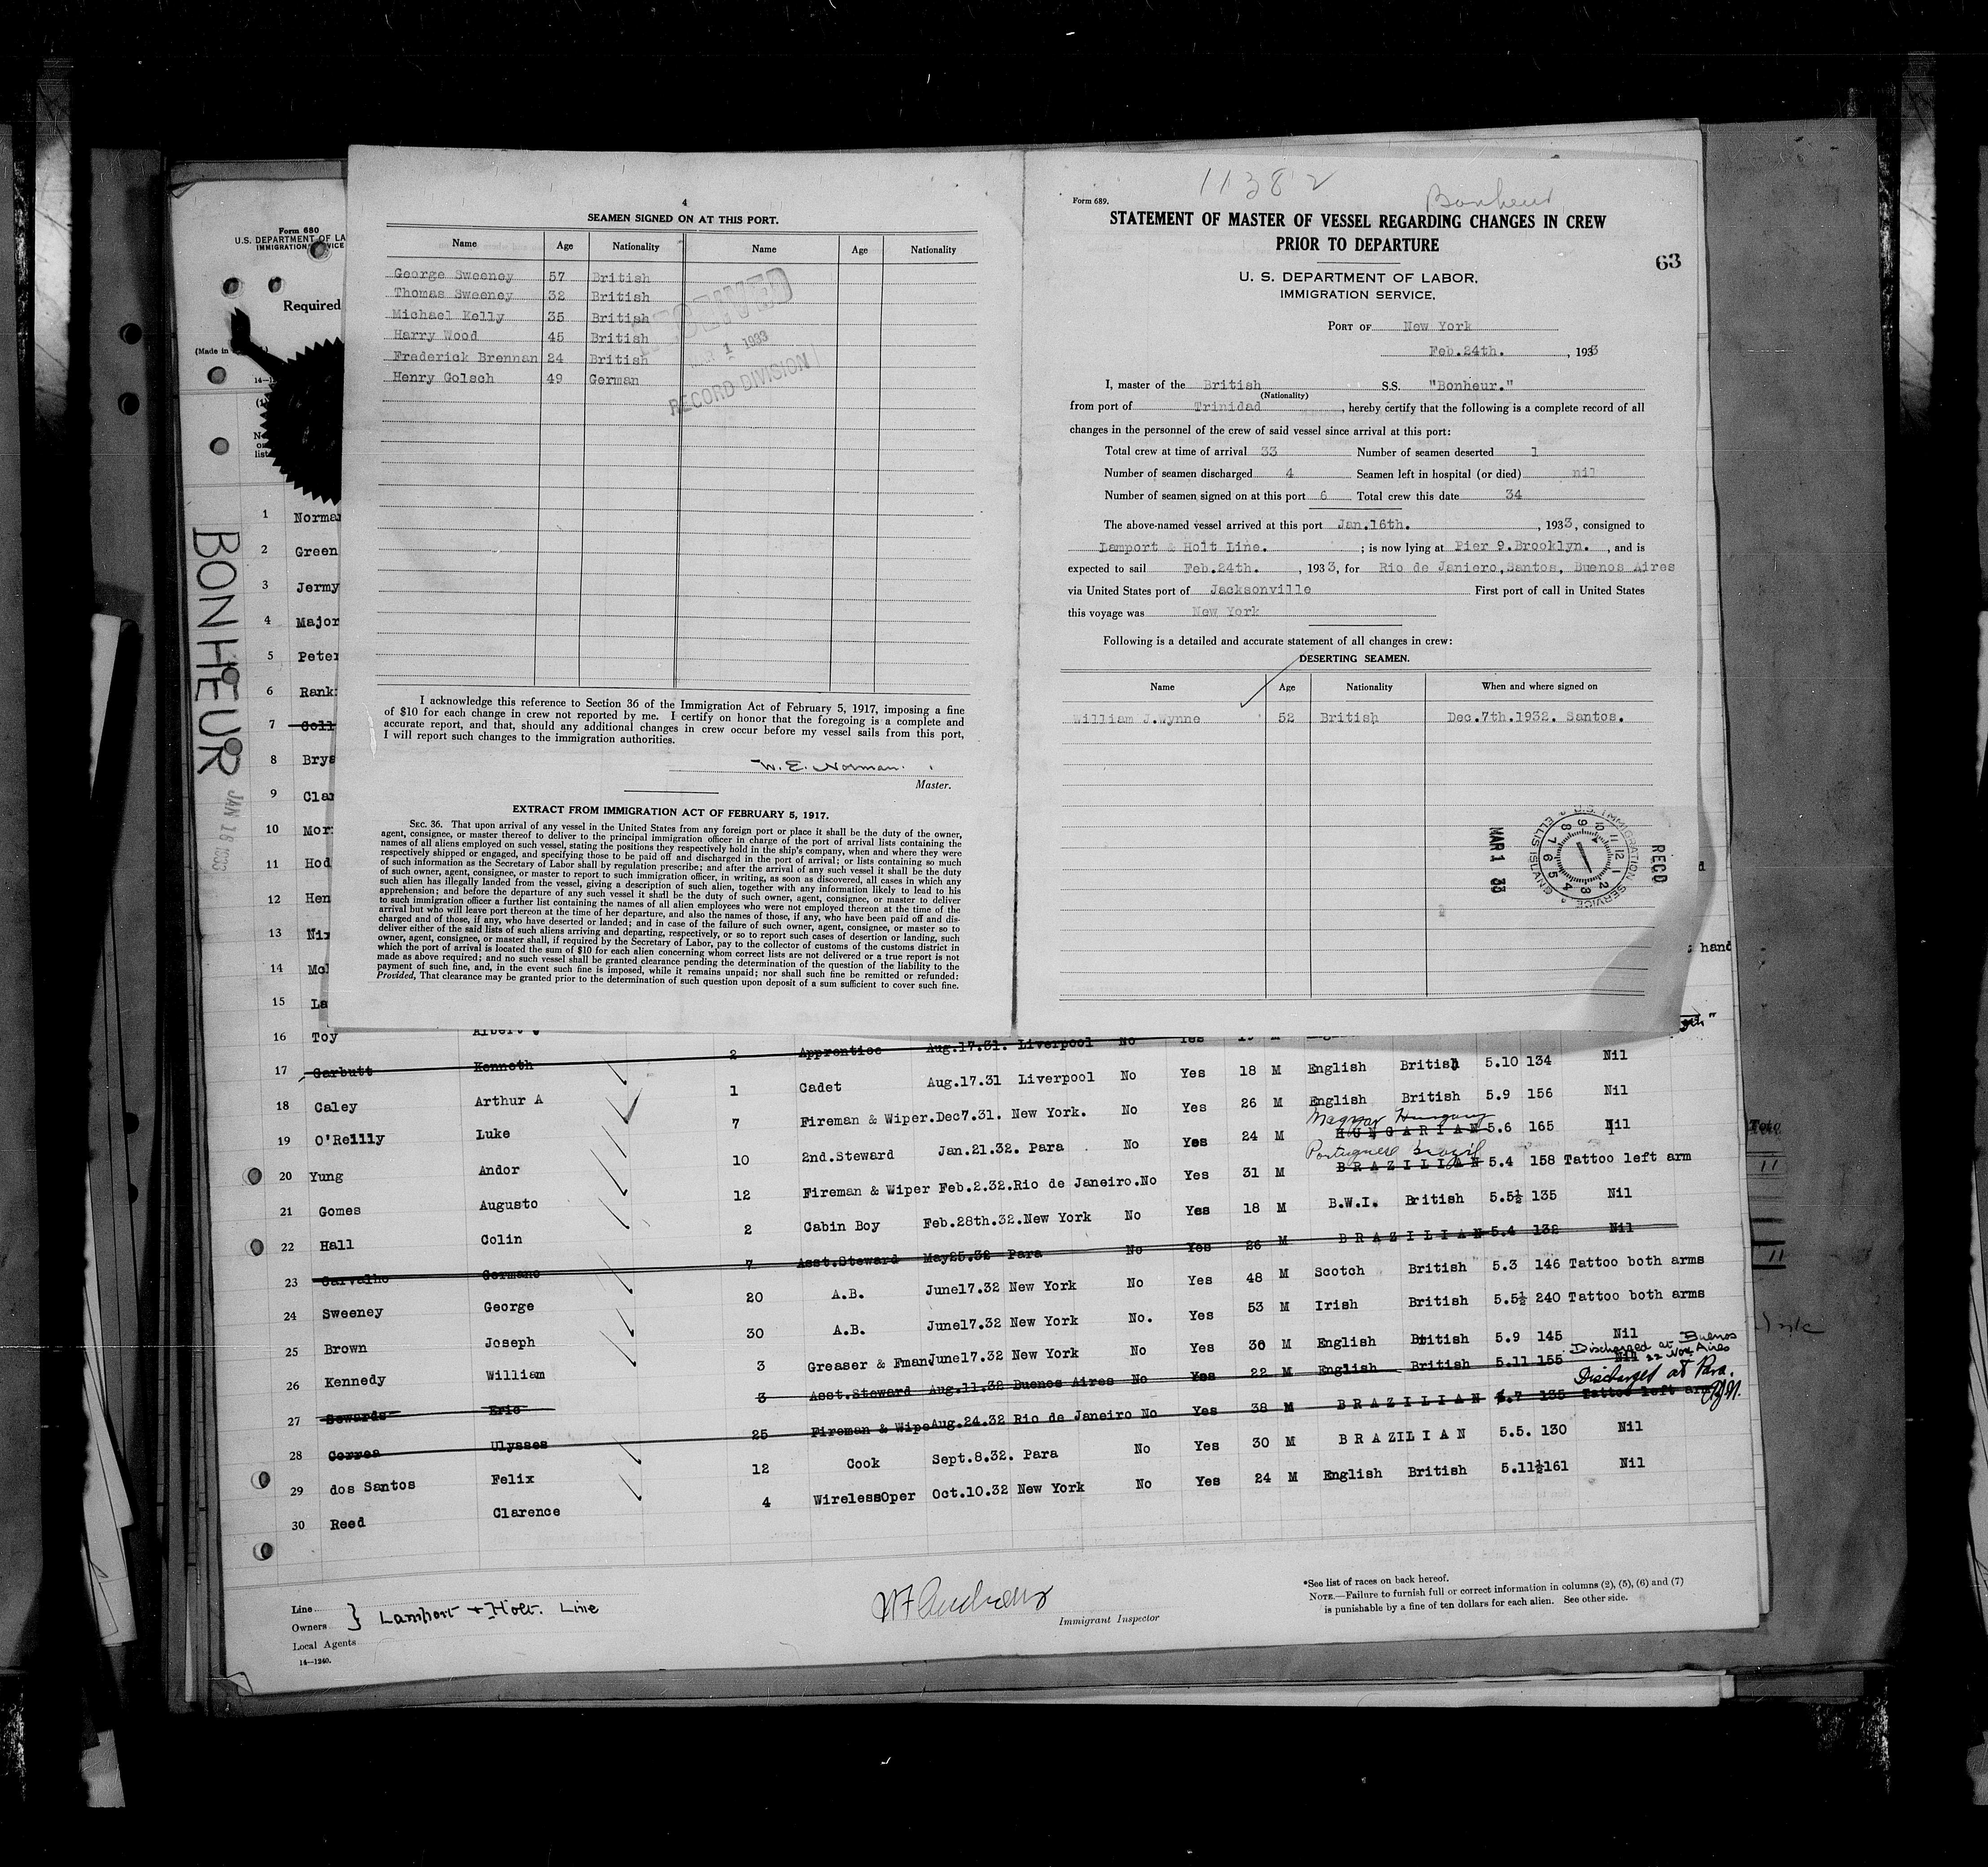 4
SEAMEN SIGNED ON AT THIS PORT.
Name Age Nationality Name Age Nationality
George Sweeney 57 British
Thomas Sweeney 32 British
Michael Kelly 35 British
Harry Wood 45 British
Frederick Brennan 24 British
Henry Golsch 49 German
RECEIVED
MAR 1 1933
RECORD DIVISION
I acknowledge this reference to Section 36 of the Immigration Act of February 5, 1917, imposing a fine
of $10 for each change in crew not reported by me. I certify on honor that the foregoing is a complete and
accurate report, and that, should any additional changes in crew occur before my vessel sails from this port,
I will report such changes to the immigration authorities.
W. E. Norman.
Master.
EXTRACT FROM IMMIGRATION ACT OF FEBRUARY 5, 1917.
SEC. 36. That upon arrival of any vessel in the United States from any foreign port or place it shall be the duty of the owner,
agent, consignee, or master thereof to deliver to the principal immigration officer in charge of the port of arrival lists containing the
names of all aliens employed on such vessel, stating the positions they respectively hold in the ship's company, when and where they were
respectively shipped or engaged, and specifying those to be paid off and discharged in the port of arrival; or lists containing so much
of such information as the Secretary of Labor shall by regulation prescribe; and after the arrival of any such vessel it shall be the duty
of such owner, agent, consignee, or master to report to such immigration officer, in writing, as soon as discovered, all cases in which any
such alien has illegally landed from the vessel, giving a description of such alien, together with any information likely to lead to his
apprehension; and before the departure of any such vessel it shall be the duty of such owner, agent, consignee, or master to deliver
to such immigration officer a further list containing the names of all alien employees who were not employed thereon at the time of the
arrival but who will leave port thereon at the time of her departure, and also the names of those, if any, who have been paid off and dis-
charged and of those, if any, who have deserted or landed; and in case of the failure of such owner, agent, consignee, or master so to
deliver either of the said lists of such aliens arriving and departing, respectively, or so to report such cases of desertion or landing, such
owner, agent, consignee, or master shall, if required by the Secretary of Labor, pay to the collector of customs of the customs district in
which the port of arrival is located the sum of $10 for each alien concerning whom correct lists are not delivered or a true report is not
made as above required; and no such vessel shall be granted clearance pending the determination of the question of the liability to the
payment of such fine, and, in the event such fine is imposed, while it remains unpaid; nor shall such fine be remitted or refunded:
Provided, That clearance may be granted prior to the determination of such question upon deposit of a sum sufficient to cover such fine.
11382
Bonheur
Form 689.
STATEMENT OF MASTER OF VESSEL REGARDING CHANGES IN CREW
PRIOR TO DEPARTURE
63
U. S. DEPARTMENT OF LABOR,
IMMIGRATION SERVICE,
PORT OF New York
Feb.24th. , 1933
I, master of the British S.S. "Bonheur."
(Nationality)
from port of Trinidad , hereby certify that the following is a complete record of all
changes in the personnel of the crew of said vessel since arrival at this port:
Total crew at time of arrival 33 Number of seamen deserted 1
Number of seamen discharged 4 Seamen left in hospital (or died) nil
Number of seamen signed on at this port 6 Total crew this date 34
The above-named vessel arrived at this port Jan.16th. , 1933, consigned to
Lamport & Holt Line. ; is now lying at Pier 9.Brooklyn. , and is
expected to sail Feb.24th. , 1933, for Rio de Janiero,Santos, Buenos Aires
via United States port of Jacksonville First port of call in United States
this voyage was New York
Following is a detailed and accurate statement of all changes in crew:
DESERTING SEAMEN.
Name Age Nationality When and where signed on
William J.Wynne 52 British Dec.7th.1932. Santos.
RECD
U.S. IMMIGRATION SERVICE
ELLIS ISLAND
MAR 1 33
Form 680
U.S. DEPARTMENT OF LA
IMMIGRATION VICE
Required
(Made in
BONHEUR
JAN 18 1933
1 Norma
2 Green
3 Jermy
4 Major
5 Peter
6 Rank
7 Coll
8 Brya
9 Clar
10 Mor
11 Hod
12 Hen
13 Nix
14 Mc
15 La
hand
16 Toy Albert
17 Garbutt Kenneth 2 Apprentice Aug.17.31. Liverpool No Yes 19 M
18 Caley Arthur A 1 Cadet Aug.17.31 Liverpool No Yes 18 M English British 5.10 134 Nil
19 O'Reilly Luke 7 Fireman & Wiper.Dec7.31. New York. No Yes 26 M English British 5.9 156 Nil
Magyar Hungary
20 Yung Andor 10 2nd.Steward Jan.21.32. Para No Yes 24 M HUNGARIAN 5.6 165 Nil
Portuguese Brazil
21 Gomes Augusto 12 Fireman & Wiper Feb.2.32.Rio de Janeiro.No Yes 31 M BRAZILIAN 5.4 158 Tattoo left arm
22 Hall Colin 2 Cabin Boy Feb.28th.32.New York No Yes 18 M B.W.I. British 5.5½ 135 Nil
23 Carvalho Germano 7 Asst.Steward May25.32 Para No Yes 26 M BRAZILIAN 5.4 132 Nil
24 Sweeney George 20 A.B. June17.32 New York No Yes 48 M Scotch British 5.3 146 Tattoo both arms
25 Brown Joseph 30 A.B. June17.32 New York No. Yes 53 M Irish British 5.5½ 240 Tattoo both arms
26 Kennedy William 3 Greaser & Fman June17.32 New York No Yes 30 M English British 5.9 145 Nil
Discharged at Buenos Aires 22 Nov
27 Sewards Eric 3 Asst.Steward Aug.11.32 Buenos Aires No Yes 22 M English British 5.11 155 Nil
Discharged at Para.
28 Correa Ulysses 25 Fireman & Wipe Aug.24.32 Rio de Janeiro No Yes 38 M BRAZILIAN 5.7 135 Tattoo left arm
29 dos Santos Felix 12 Cook Sept.8.32. Para No Yes 30 M BRAZILIAN 5.5. 130 Nil
30 Reed Clarence 4 WirelessOper Oct.10.32 New York No Yes 24 M English British 5.11½ 161 Nil
Line
Owners } Lamport & Holt. Line
Local Agents
14—1240.
Immigrant Inspector
*See list of races on back hereof.
NOTE.—Failure to furnish full or correct information in columns (2), (5), (6) and (7)
is punishable by a fine of ten dollars for each alien. See other side.